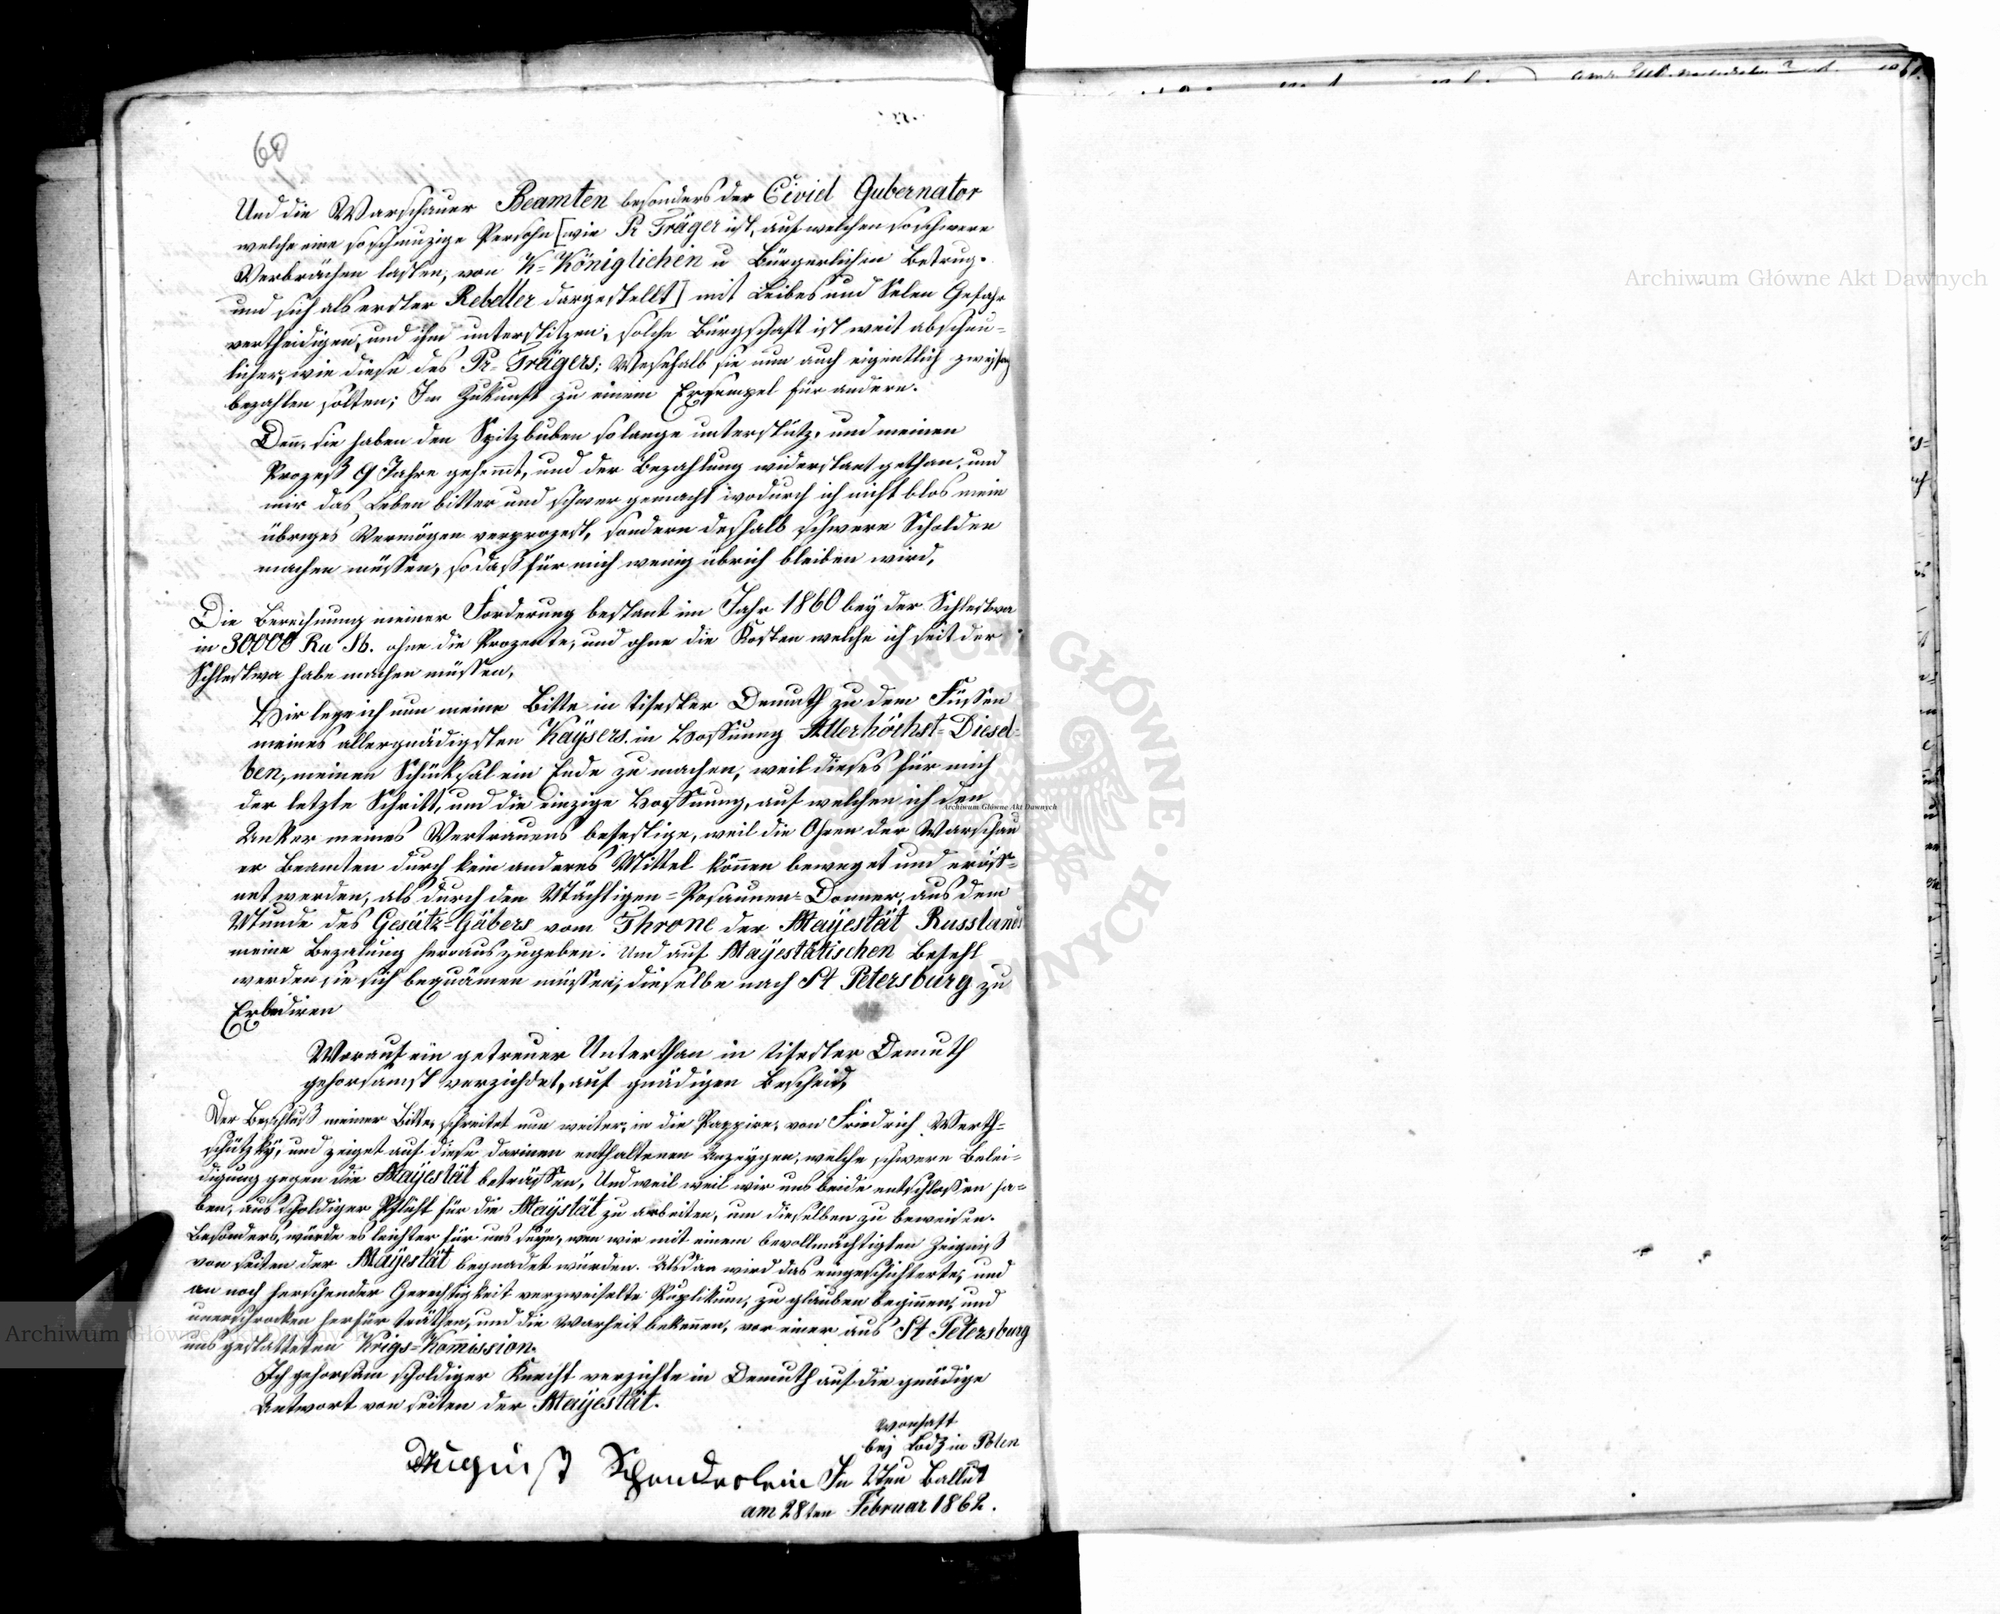 60
Und die Warschauer Beamten besonders der Civiel Gubernator
welche eine so schmuzige Persohn [wie Pr Träger ist, auf welchen so schwere
Verbrächen lasten, von K=Königlichen u Bürgerlichen Betrug.
und sich als erster Rebeller dargestellt] mit Leibes und Selen Gefahr
vertheidigen, und ihm unterstitzen, solche Bürgschaft ist weit abscheu=
licher, wie diese des Pr=Trägers; Weshalb sie nun auch eigentlich zweyfach
bezahlen sollten; Im Zukunft zu einem Exsempel für andere.
Den, sie haben den Spitzbuben so lange unterstütz, und meinen
Prozeß 9 Jahre gehemt, und der Bezahlung widerstant gethan, und
mir das Leben bitter und schwer gemacht wodurch ich nicht blos mein
übriges Vermögen verprozest, sondern deshalb schwere Scholden
machen müssen, so daß für mich wenig übrich bleiben wird,
Die Berechnung meiner Forderung bestant im Jahr 1860 bey der Schlestwa
in 30,000 Ru Sb. ohne die Prozente, und ohne die Kosten welche ich seit der
Schlestwa habe machen müssen,
Hir lege ich nun meine Bitte in tifester Demuth zu dem Füssen
meines allergnädigsten Kaÿsers. in Hoffnung Allerhöchst=Diesel=
ben, meinen Schüksal ein Ende zu machen, weil dieses für mich
der letzte Schritt, und die einzige Hoffnung, auf welchen ich den
Anker meines Vertrauens befestige, weil die Ohren der Warschau
er Beamten durch kein anderes Mittel können beweget und eröff=
net werden, als durch den Mächtigen=Posaunen=Donner, aus dem
Munde des Gesätz=Gäbers vom Throne der Maÿestät Russlands
meine Bezalung herauszugeben. Und auf Maÿestätischen Befehl
werden sie sich bequämen müssen, dieselbe nach St Petersburg zu
Exbediren
Worauf ein getreuer Unterthan in tifester Demuth
gehorsamst verzichdet, auf gnädigen Bescheid,
Der Beschluß meiner Bitte, schreitet nun weiter, in die Pappire, von Friedrich Werth=
schützky, und zeiget auf diese darinen enthaltenen Anzeygen, welche schwere Belei=
digung gegen die Maÿestät beträffen, Und weil weil wir uns beide entschlossen ha=
ben, aus scholdiger Pflicht für die Maÿstät zu arbeiten, um dieselben zu beweisen.
Besonders, würde es leichter für uns seyn, wen wir mit einem bevollmächtigten Zeigniß
von seiten der Maÿestät begnadet würden. Alsdan wird das eingeschichterte, und
an noch herschender Gerechtigkeit verzweifelte Puplikum, zu glauben beginnen, und
unerschrocken herfür träthen, und die Warheit bekennen, vor einer aus St Petersburg
uns gestatteten Krigs=Komission.
Ich gehorsam scholdiger Knecht verzichte in Demuth auf die gnädige
Antwort von seiten der Maÿestät.
wonhaft
beÿ Lodz in Polen
August Schenderlein In Neu Ballut
am 28ten Februar 1862.
Archiwum Główne Akt Dawnych
Archiwum Główne Akt Dawnych
Archiwum Główne Akt Dawnych